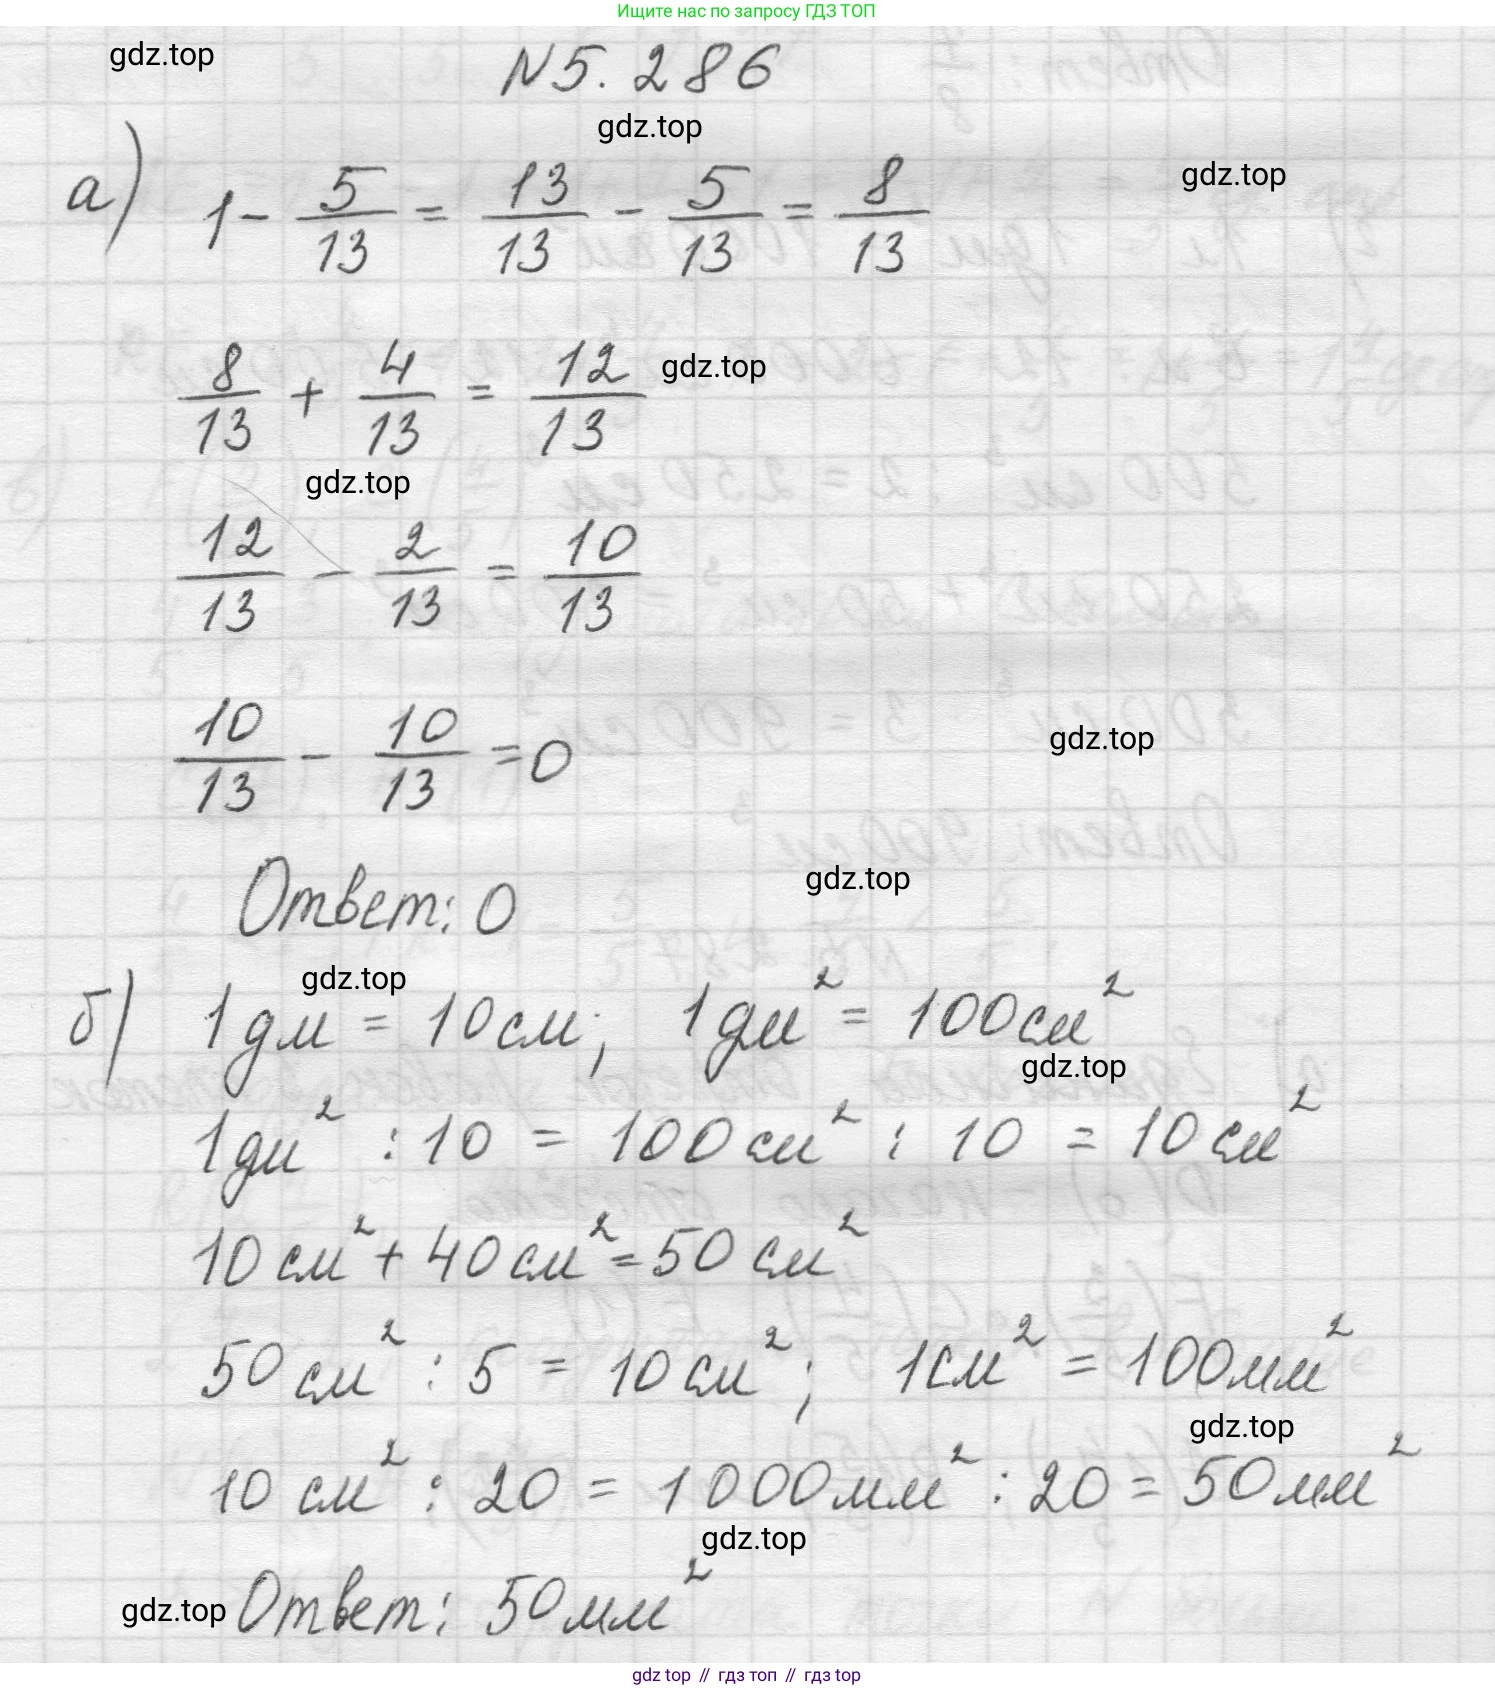 Ищите нас по запросу ГДЗ ТОП
gdz.top
N5.286
gdz.top
а) 1 - 5/13 = 13/13 - 5/13 = 8/13
gdz.top
8/13 + 4/13 = 12/13
gdz.top
gdz.top
12/13 - 2/13 = 10/13
10/13 - 10/13 = 0
gdz.top
Ответ: 0
gdz.top
gdz.top
б) 1дм = 10см; 1дм² = 100см²
gdz.top
1дм² : 10 = 100см² : 10 = 10см²
10см² + 40см² = 50см²
50см² : 5 = 10см²; 1см² = 100мм²
gdz.top
10см² : 20 = 1000мм² : 20 = 50мм²
gdz.top
gdz.top
Ответ: 50мм²
gdz top // гдз топ // гдз top